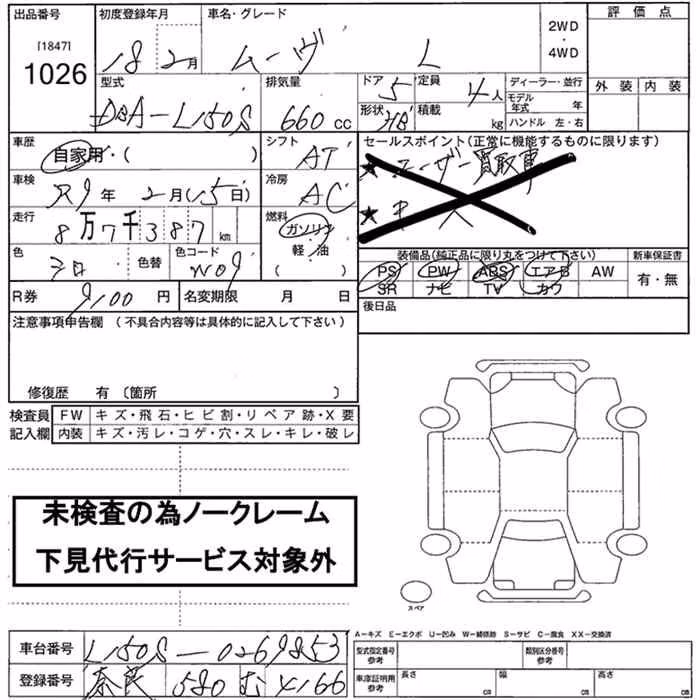 出品番号 初度登録年月 車名・グレード 2WD・4WD 評価点
[1847]
1026
18 2月 ムーヴ L
型式 排気量 ドア 5 定員 4人 ディーラー・並行 外装 内装
DBA-L150S 660 cc 形状 HB 積載 kg モデル年式 年
ハンドル 左・右
車歴 自家用・( ) シフト AT セールスポイント(正常に機能するものに限ります)
★ユーザー買取車
車検 R9年 2月(15日) 冷房 AC
★
走行 8万7千387 km 燃料 ガソリン
軽・油
( )
色 色替 色コード W09 装備品(純正品に限り丸をつけて下さい) 新車保証書
PS PW ABS エアB AW 有・無
SR ナビ TV カワ
R券 9100円 名変期限 月 日 後日品
注意事項申告欄 (不具合内容等は具体的に記入して下さい)
修復歴 有 〔箇所 〕
検査員 FW キズ・飛石・ヒビ割・リペア跡・X要
記入欄 内装 キズ・汚レ・コゲ・穴・スレ・キレ・破レ
未検査の為ノークレーム
下見代行サービス対象外
スペア
A-キズ E-エクボ U-凹み W-補修跡 S-サビ C-腐食 XX-交換済
車台番号 L150S-0269853 型式指定番号 参考 類別区分番号 参考
登録番号 奈良 580 む 4166 車庫証明用 参考 長さ cm 幅 cm 高さ cm